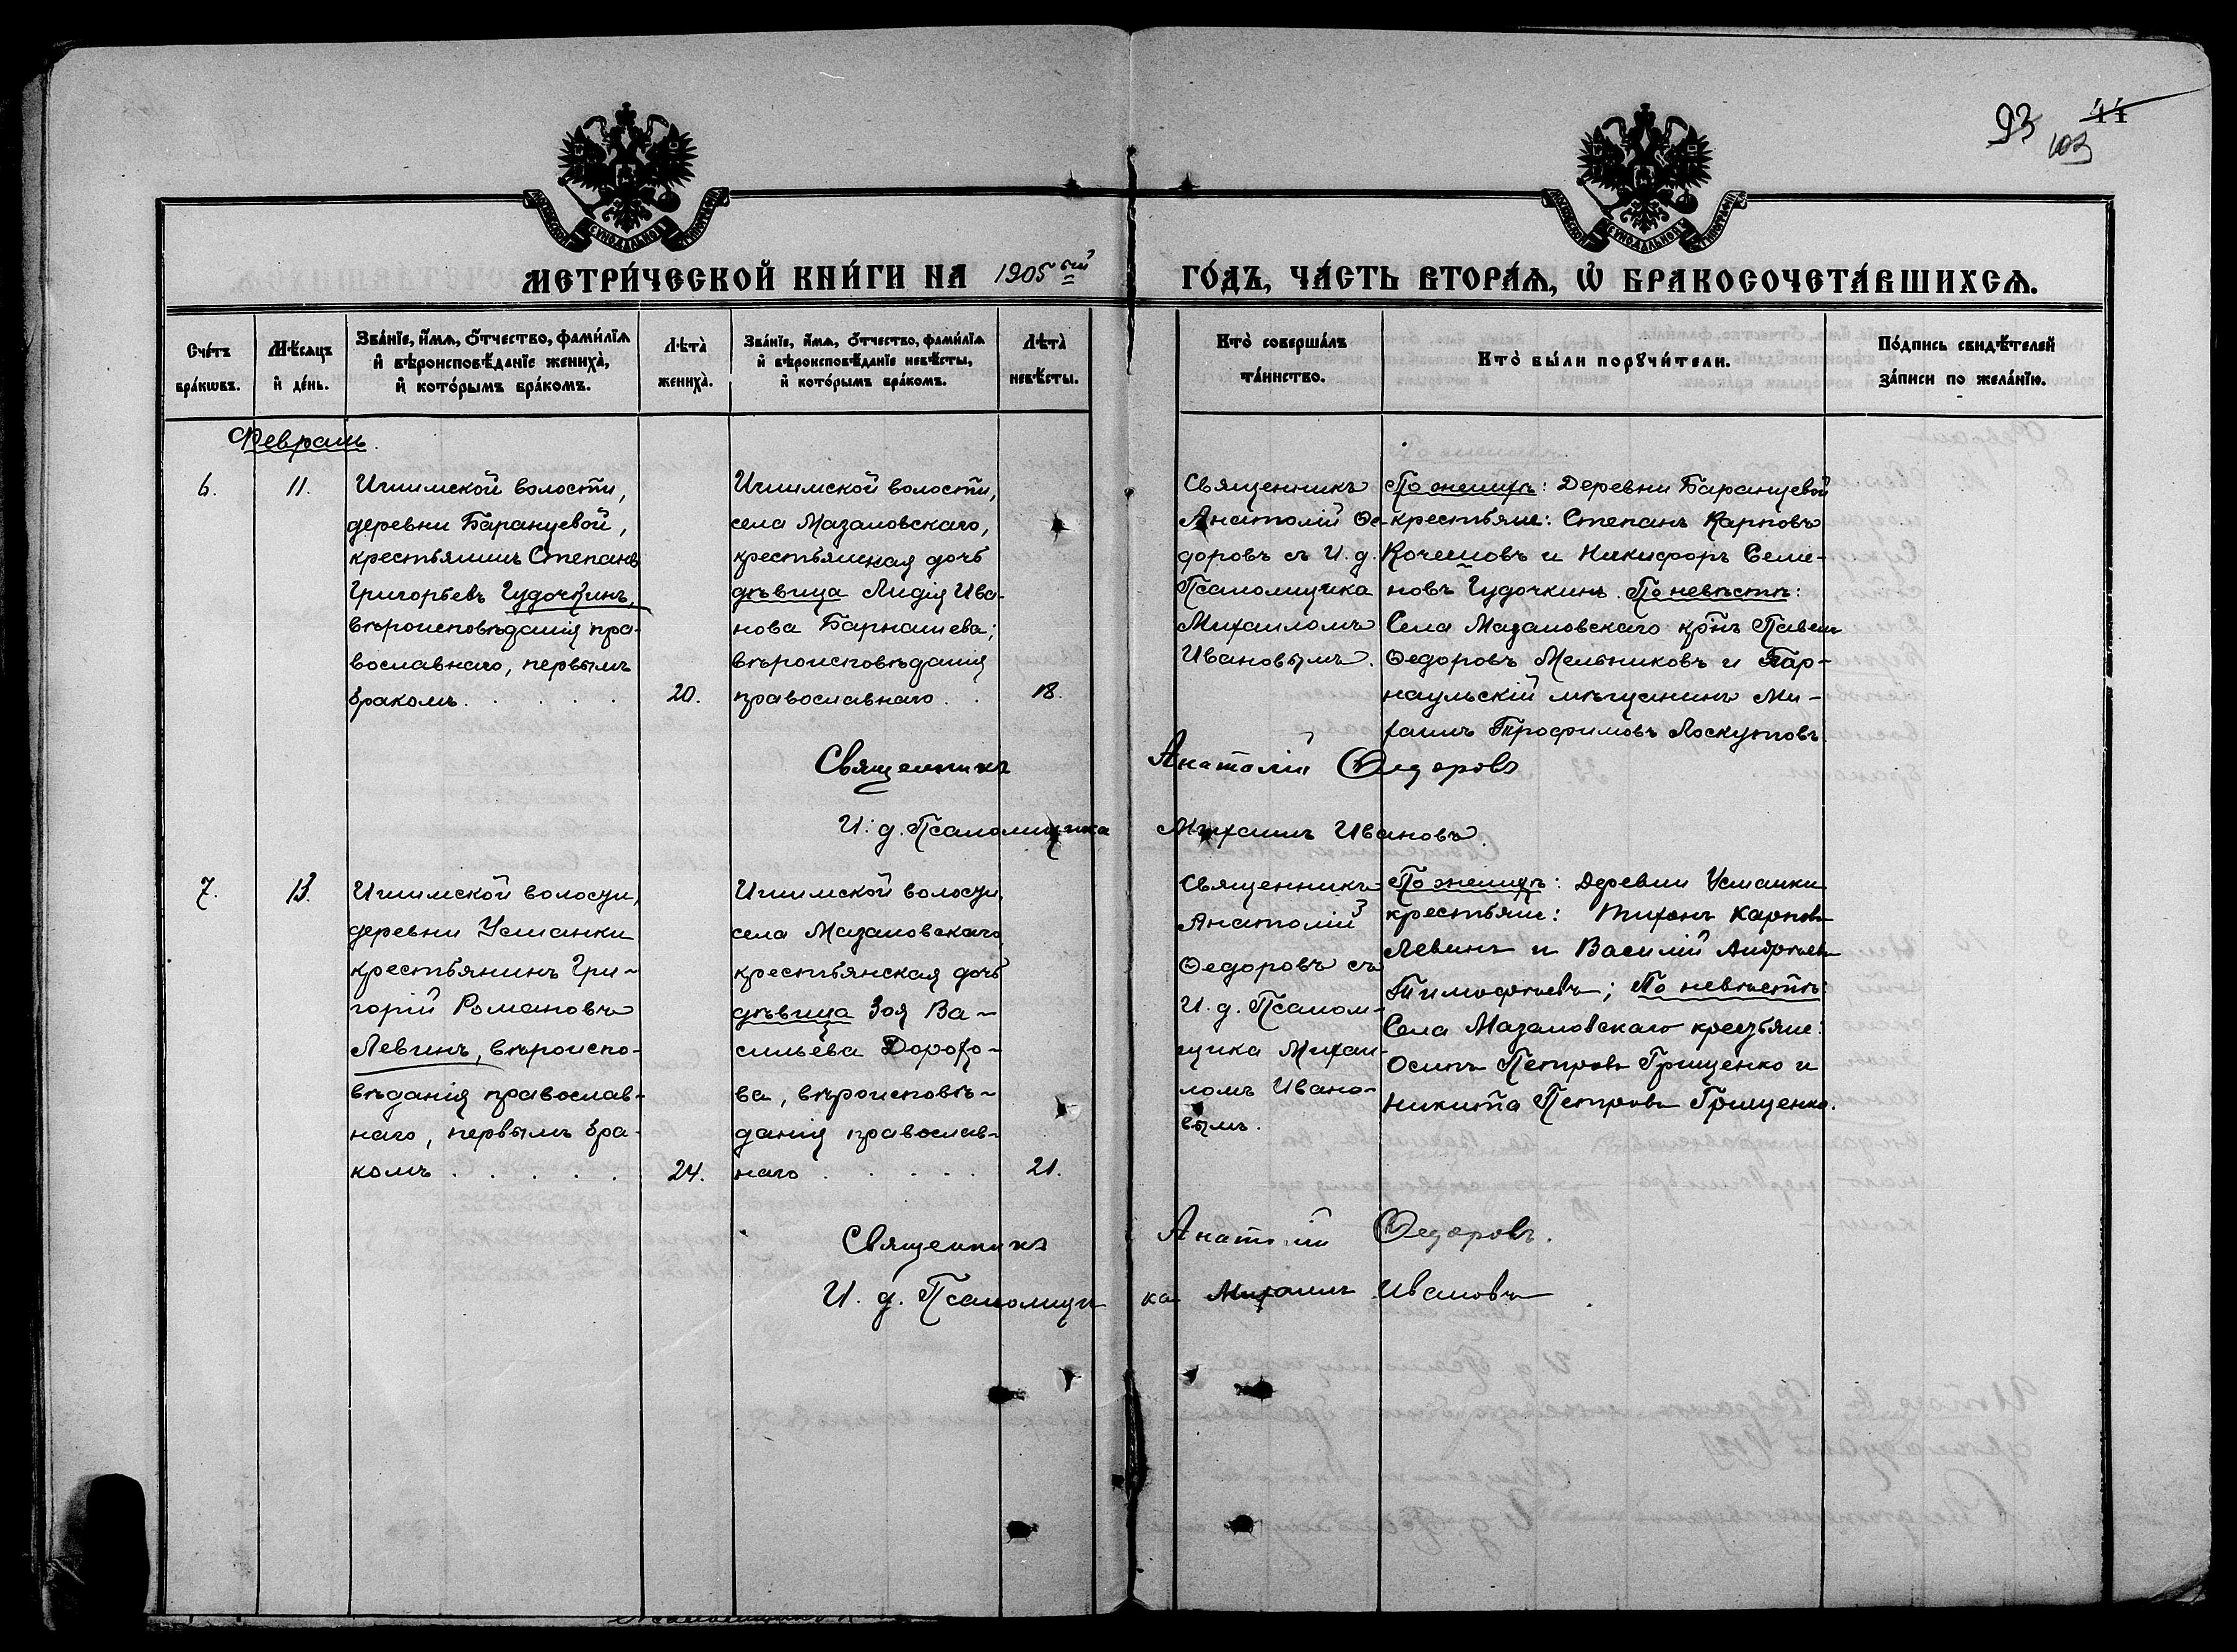 93 44
103
МОСКОВСКОЙ СѴНОДАЛЬНОЙ ТИПОГРАФІИ
МОСКОВСКОЙ СѴНОДАЛЬНОЙ ТИПОГРАФІИ
МЕТРИ́ЧЕСКОЙ КНИ́ГИ НА 1905 ый ГО́ДЪ, ЧА́СТЬ ВТОРА́Ѧ, Ѡ҆ БРАКОСОЧЕТА́ВШИХСѦ.
Сче́тъ
бра́кѡвъ.
Мѣ́сѧцъ
и҆ де́нь.
Зва́нїе, и҆́мѧ, ѻ҆́тчество, фами́лїѧ
и҆ вѣроисповѣ́данїе жениха̀,
и҆ кото́рымъ бра́комъ.
Лѣта̀
жениха̀.
Зва́нїе, и҆́мѧ, ѻ҆́тчество, фами́лїѧ
и҆ вѣроисповѣ́данїе невѣ́сты,
и҆ кото́рымъ бра́комъ.
Лѣта̀
невѣ́сты.
Кто̀ соверша́лъ
та́инство.
Кто̀ бы́ли порꙋчи́тели.
По́дпись свидѣ́телей
за́писи по жела́нїю.
Февраль.
6.
11.
Ишимской волости,
деревни Баранцевой,
крестьянинъ Степанъ
Григорьевъ Чудочкинъ,
вѣроисповѣданія пра-
вославнаго, первымъ
бракомъ . . . . .
20.
Ишимской волости,
села Мазаловскаго,
крестьянская дочь
дѣвица Лидія Ива-
нова Барнашева;
вѣроисповѣданія
православнаго . .
18.
Священникъ
Анатолій Ѳе-
доровъ съ И. д.
Псаломщика
Михаиломъ
Ивановымъ.
По женихѣ: Деревни Баранцевой
крестьяне: Степанъ Карповъ
Кочешовъ и Никифоръ Семе-
новъ Чудочкинъ. По невѣстѣ:
Села Мазаловскаго кр̃нъ Павелъ
Ѳедоровъ Мельниковъ и Бар-
наульскій мѣщанинъ Ми-
хаилъ Трофимовъ Лоскутовъ.
Священникъ Анатолій Ѳедоровъ
И. д. Псаломщика Михаилъ Ивановъ.
7.
13.
Ишимской волости,
деревни Усманки
крестьянинъ Гри-
горій Романовъ
Левинъ, вѣроиспо-
вѣданія православ-
наго, первымъ бра-
комъ . . . . .
24.
Ишимской волости,
села Мазаловскаго
крестьянская дочь
дѣвица Зоя Ва-
сильева Дорохо-
ва, вѣроисповѣ-
данія православ-
наго . . . . .
21.
Священникъ
Анатолій
Ѳедоровъ съ
И. д. Псалом-
щика Михаи-
ломъ Ивано-
вымъ.
По женихѣ: Деревни Усманки
крестьяне: Тихонъ Карповъ
Левинъ и Василій Андреевъ
Тимофѣевъ; По невѣстѣ:
Села Мазаловскаго крестьяне:
Осипъ Петровъ Грищенко и
Никита Петровъ Грищенко.
Священникъ Анатолій Ѳедоровъ.
И. д. Псаломщика Михаилъ Ивановъ